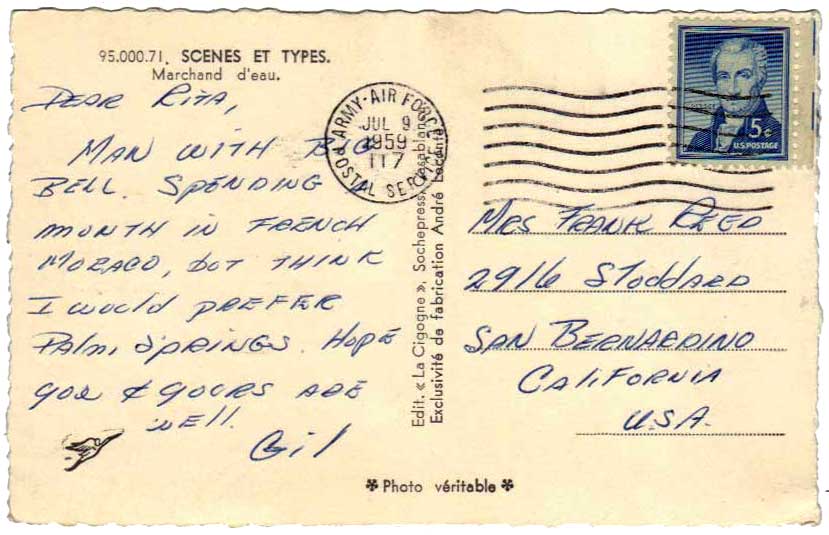 95.000.71. SCENES ET TYPES.
Marchand d'eau.
DEAR RITA,
MAN WITH BIG
BELL. SPENDING A
MONTH IN FRENCH
MORACO, BUT THINK
I WOULD PREFER
PALM SPRINGS. HOPE
YOU & YOURS ARE
WELL.
Gil
ARMY-AIR FORCE
JUL 9
1959
117
POSTAL SERVICE
Edit. « La Cigogne », Sochepress, Casablanca
Exclusivité de fabrication André Leconte
5¢
U.S. POSTAGE
MRS FRANK REED
2916 STODDARD
SAN BERNARDINO
CALIFORNIA
U.S.A.
✽ Photo véritable ✽